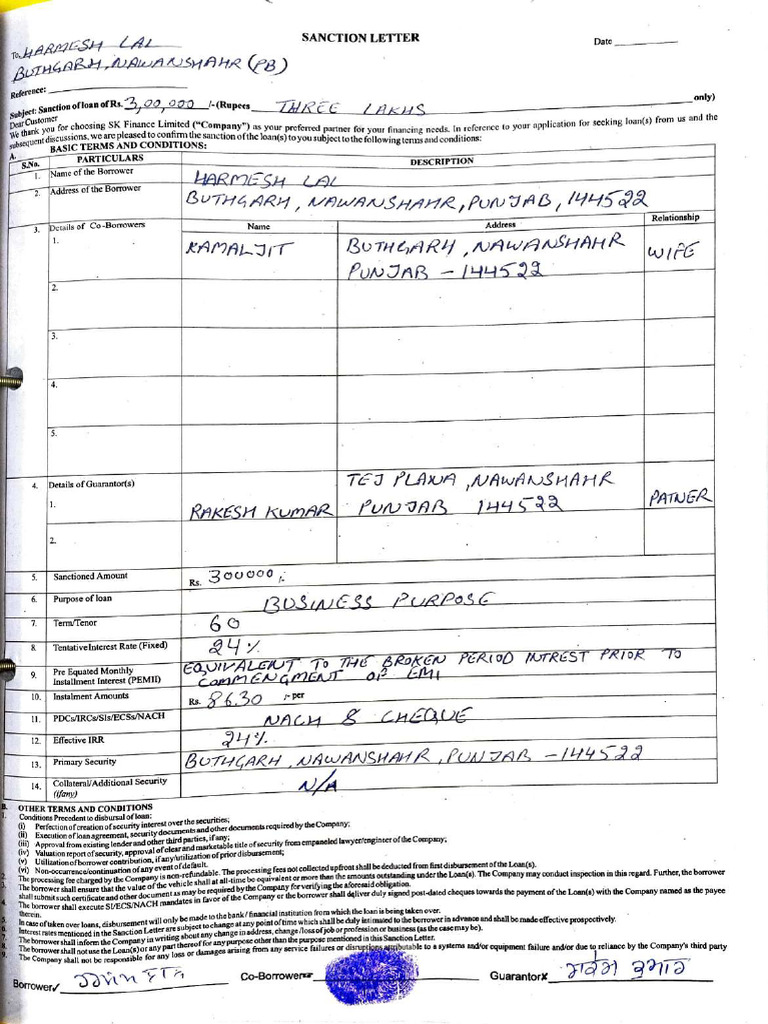 SANCTION LETTER
Date
To, HARMESH LAL
BUTHGARH, NAWANSHAHR (PB)
Reference:
Subject: Sanction of loan of Rs. 3,00,000 /- (Rupees THREE LAKHS only)
Dear Customer
We thank you for choosing SK Finance Limited ("Company") as your preferred partner for your financing needs. In reference to your application for seeking loan(s) from us and the
subsequent discussions, we are pleased to confirm the sanction of the loan(s) to you subject to the following terms and conditions:
A. BASIC TERMS AND CONDITIONS:
S.No. PARTICULARS DESCRIPTION
1. Name of the Borrower HARMESH LAL
2. Address of the Borrower BUTHGARH, NAWANSHAHR, PUNJAB, 144522
3. Details of Co-Borrowers Name Address Relationship
1. KAMALJIT BUTHGARH, NAWANSHAHR WIFE
PUNJAB - 144522
2.
3.
4.
5.
4. Details of Guarantor(s) TEJ PLAWA, NAWANSHAHR
1. RAKESH KUMAR PUNJAB 144522 PATNER
2.
5. Sanctioned Amount Rs. 300000/-
6. Purpose of loan BUSINESS PURPOSE
7. Term/Tenor 60
8. Tentative Interest Rate (Fixed) 24%
9. Pre Equated Monthly EQUIVALENT TO THE BROKEN PERIOD INTREST PRIOR TO
Installment Interest (PEMII) COMMENGMENT OF EMI
10. Instalment Amounts Rs. 8630 /- per
11. PDCs/IRCs/SIs/ECSs/NACH NACH & CHEQUE
12. Effective IRR 24%
13. Primary Security BUTHGARH, NAWANSHAHR, PUNJAB - 144522
14. Collateral/Additional Security N/A
(if any)
B. OTHER TERMS AND CONDITIONS
1. Conditions Precedent to disbursal of loan:
(i) Perfection of creation of security interest over the securities;
(ii) Execution of loan agreement, security documents and other documents required by the Company;
(iii) Approval from existing lender and other third parties, if any;
(iv) Valuation report of security, approval of clear and marketable title of security from empaneled lawyer/engineer of the Company;
(v) Utilization of borrower contribution, if any/utilization of prior disbursement;
(vi) Non-occurrence/continuation of any event of default.
2. The processing fee charged by the Company is non-refundable. The processing fees not collected upfront shall be deducted from first disbursement of the Loan(s).
3. The borrower shall ensure that the value of the vehicle shall at all-time be equivalent or more than the amounts outstanding under the Loan(s). The Company may conduct inspection in this regard. Further, the borrower
shall submit such certificate and other document as may be required by the Company for verifying the aforesaid obligation.
4. The borrower shall execute SI/ECS/NACH mandates in favor of the Company or the borrower shall deliver duly signed post-dated cheques towards the payment of the Loan(s) with the Company named as the payee
therein.
5. In case of taken over loans, disbursement will only be made to the bank / financial institution from which the loan is being taken over.
6. Interest rates mentioned in the Sanction Letter are subject to change at any point of time which shall be duly intimated to the borrower in advance and shall be made effective prospectively.
7. The borrower shall inform the Company in writing about any change in address, change/loss of job or profession or business (as the case may be).
8. The borrower shall not use the Loan(s) or any part thereof for any purpose other than the purpose mentioned in this Sanction Letter.
9. The Company shall not be responsible for any loss or damages arising from any service failures or disruptions attributable to a systems and/or equipment failure and/or due to reliance by the Company's third party
Borrower Co-Borrower Guarantor